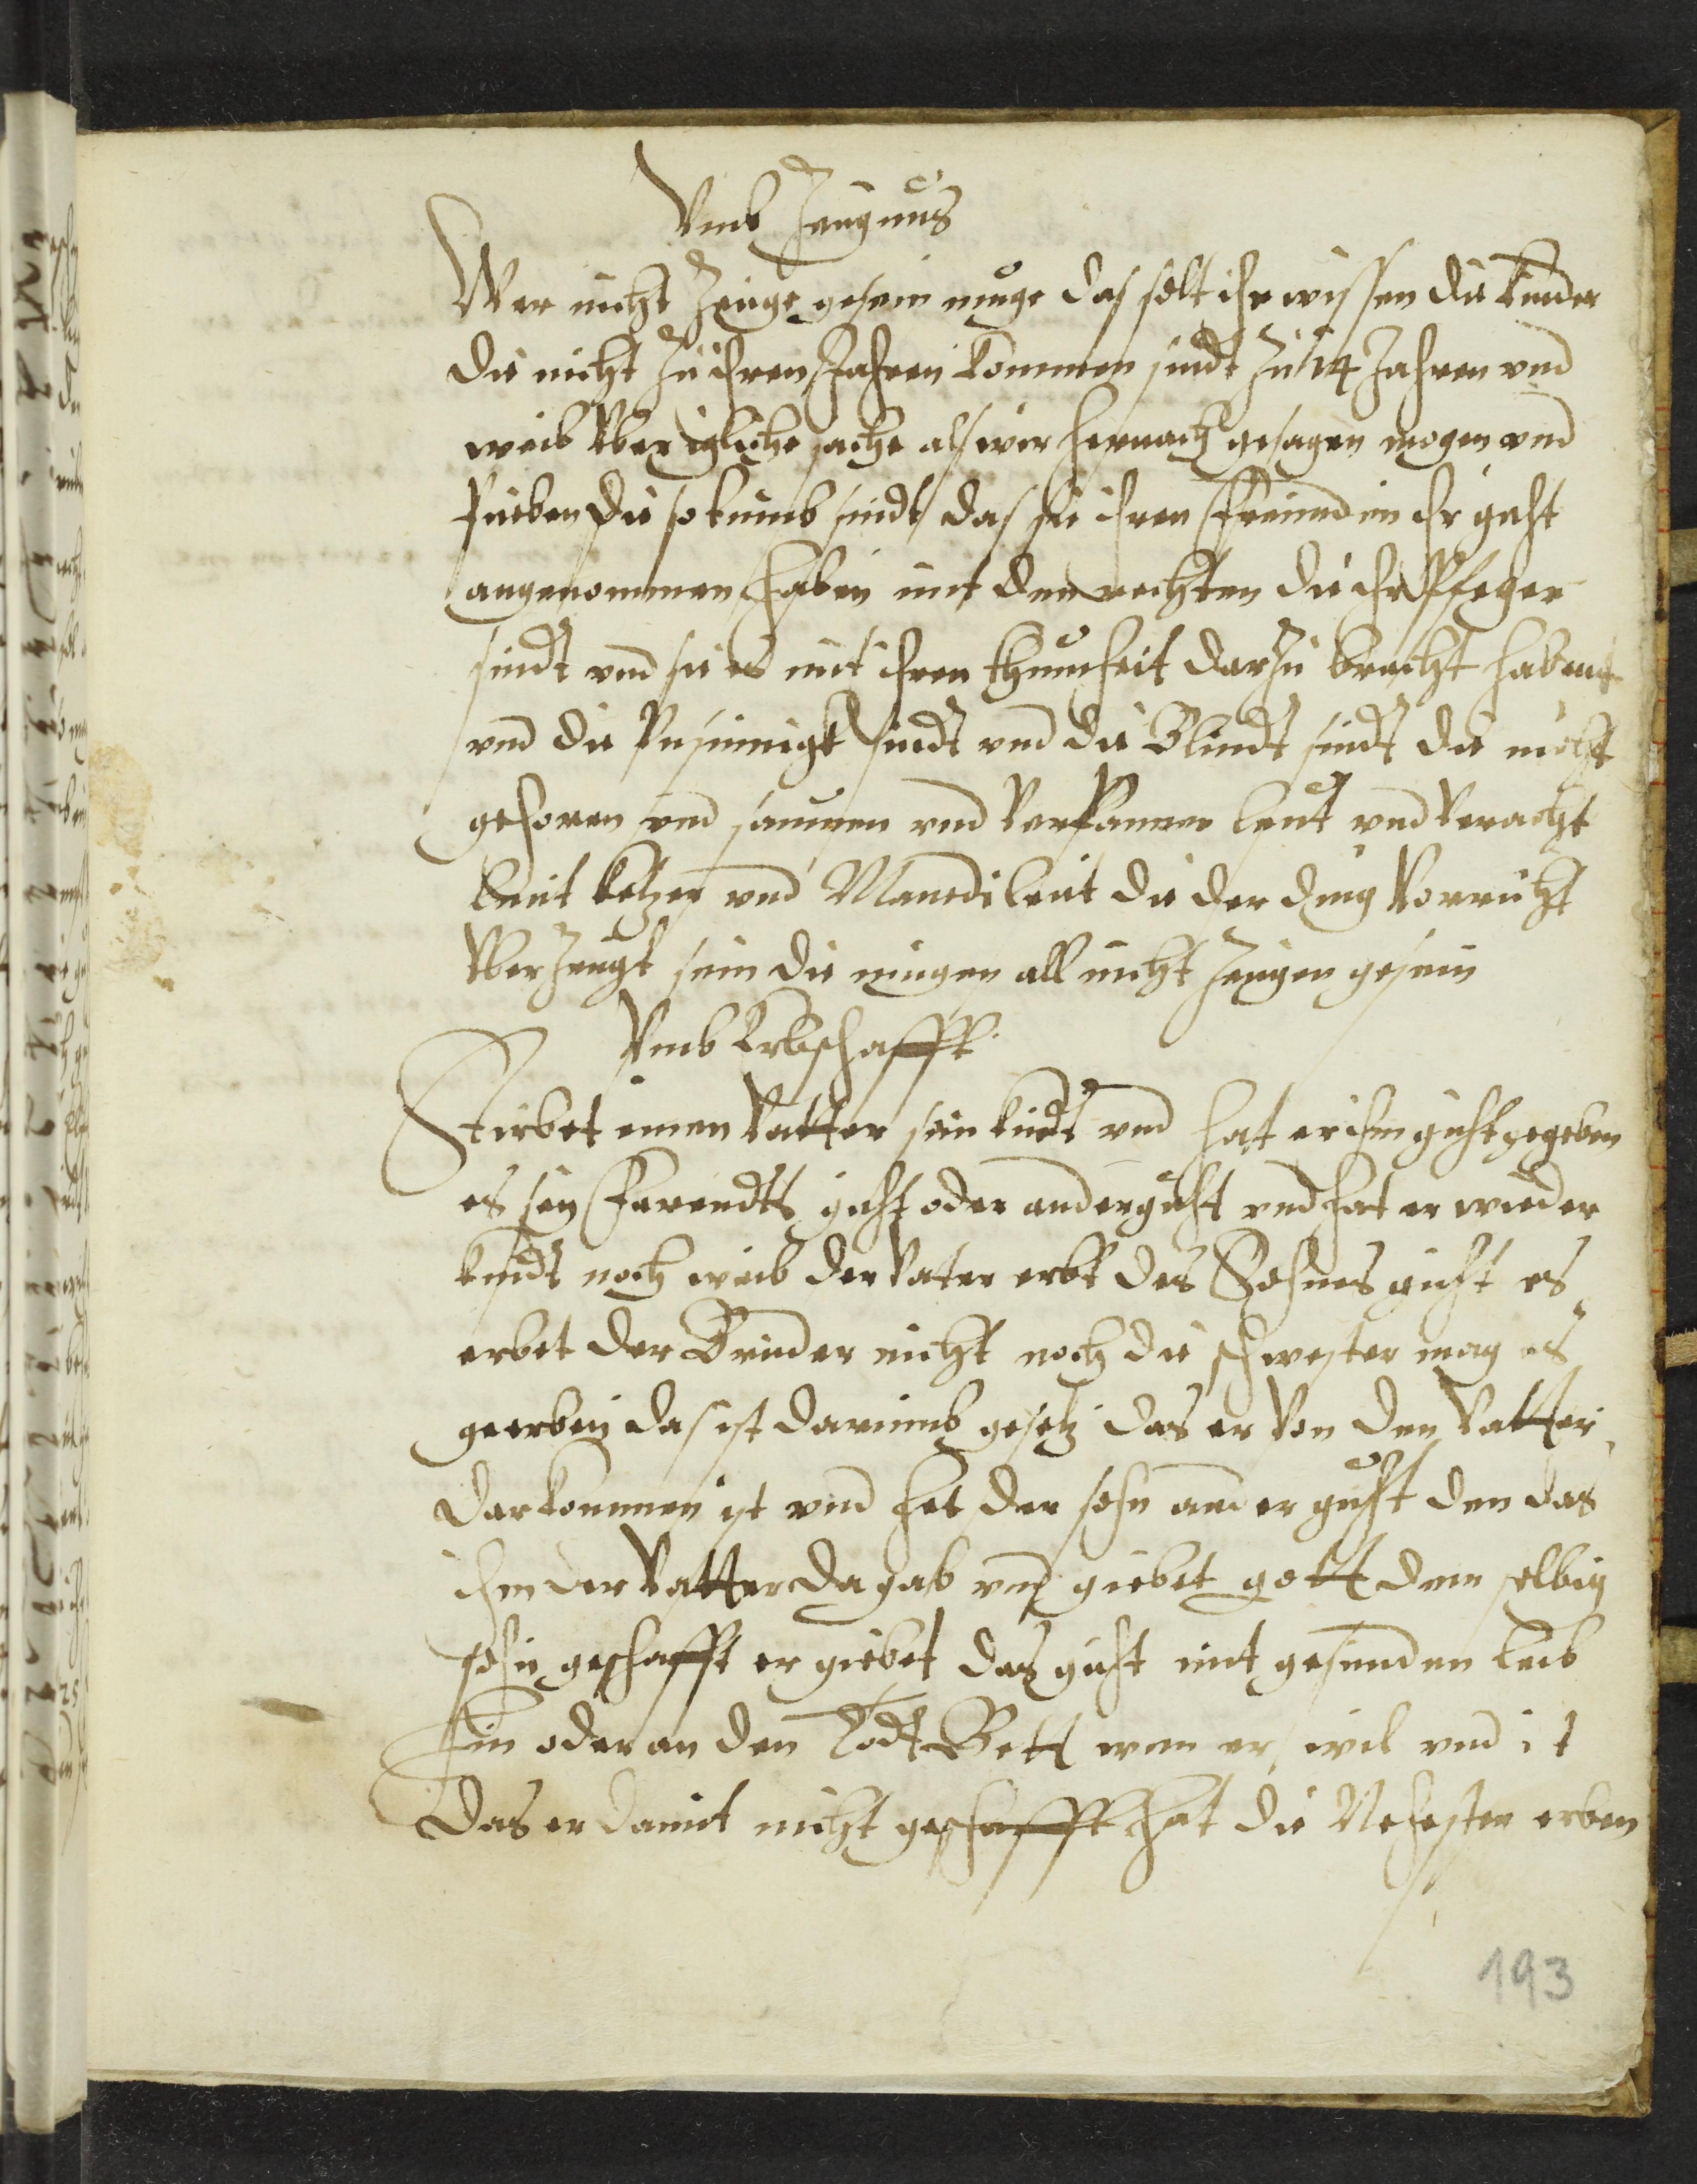 Vmb Zeugnus
Wer nicht Zeuge gesein muge das solt ihr wissen die kinder
die nicht zu ihren Jahren kommen sindt zu 14 Jahren vnd
weib vber igliche sache als wir hernach gesagen mogen vnd
die so tumb sindt das sie ihren freund in ihr guht
angenommen haben mit den rechten die ihr Pfleger
sindt vnd sie es mit ihren thumheit darzu bracht haben
vnd die sindt vnd die Blindt sindt die nicht
gehoren vnd vnd leut vnd veracht
leut ketzer vnd leut die der ding vorricht
vberzeugt sein die mugen all nicht Zeugen gesein
Vmb Erbschafft
Stirbet einen Vatter sein kindt vnd hat er ihm guht gegeben
es sey farendts guht oder ander guht vnd hat er wieder
kindt noch weib der Vater erbt des Sohnes guht es
erbet der Bruder nicht noch die schwester mag es
geerben das ist darumb gesetz das er von den Vatter
darkommen ist vnd hat der sohn ander guht den das
ihm der Vatter da gab vnd giebet gott dem selbig
sohn geschafft er giebet das guht mit gesunden leib
hin oder an den Todt Bett wem er wil vnd ist
das er damit nicht geschafft hat die Nehesten erben
193